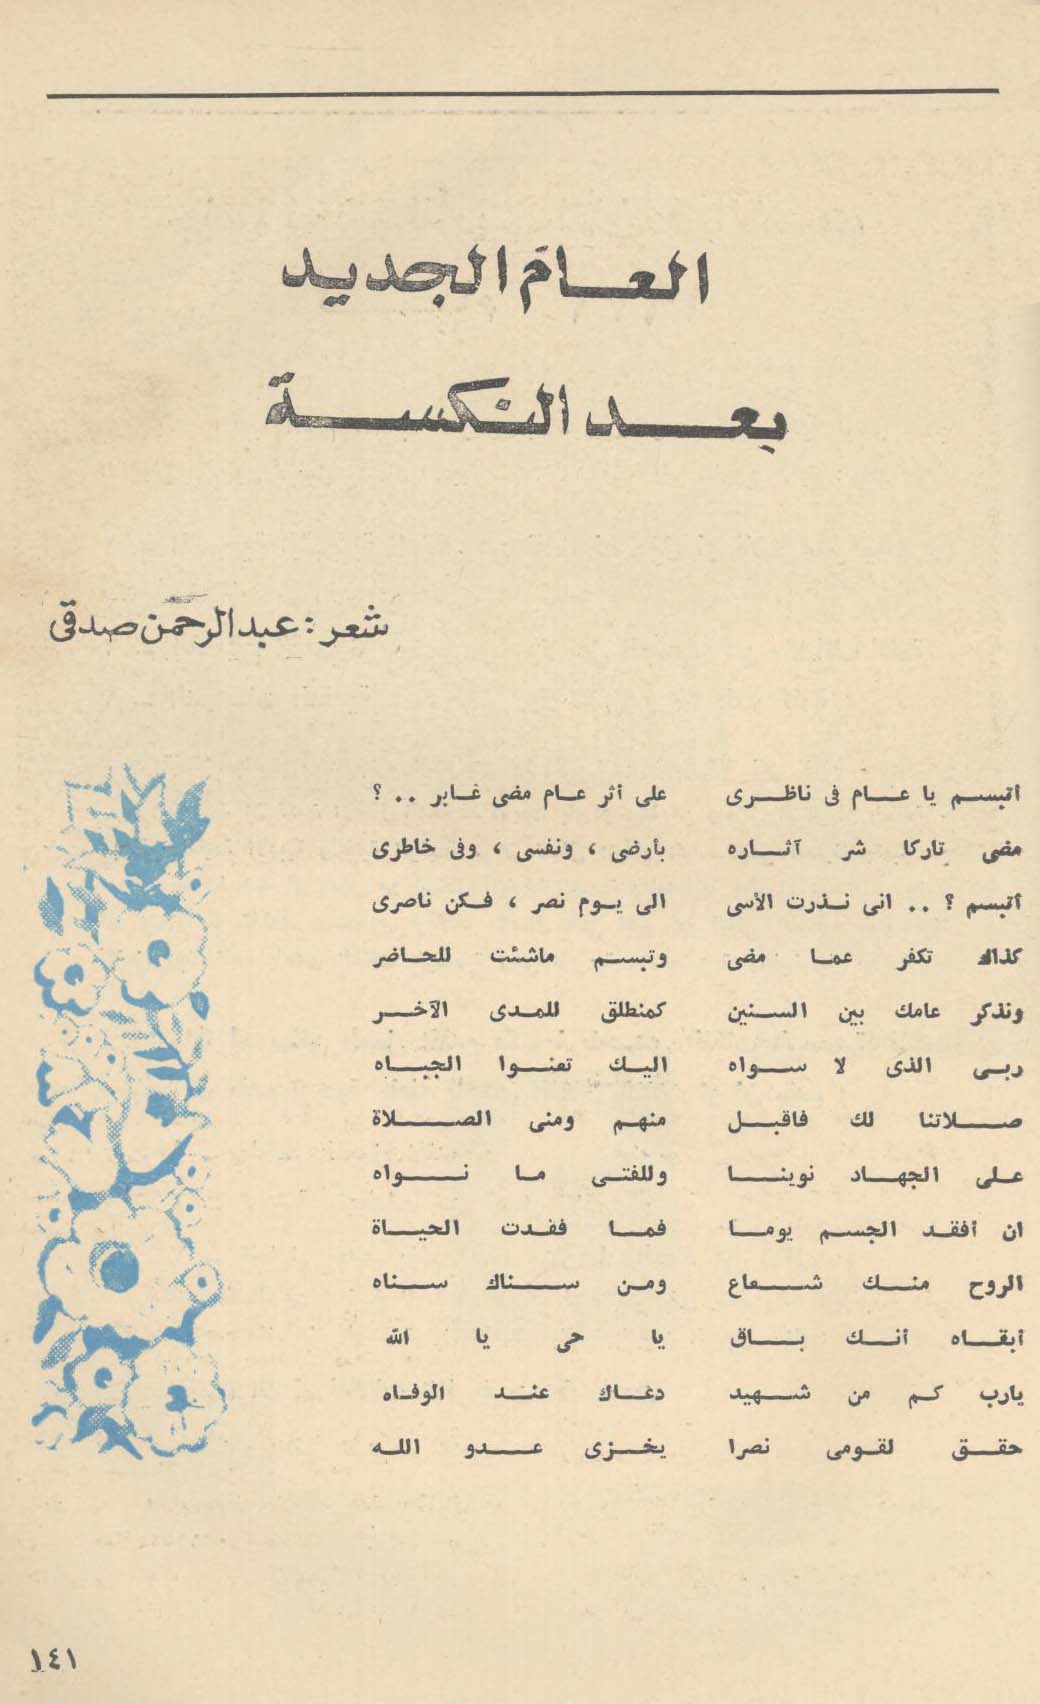 العام الجديد
بعد النكسة
شعر : عبد الرحمن صدقى
أتبسم يا عام فى ناظرى على أثر عام مضى غابر .. ؟
مضى تاركا شر آثاره بأرضى ، ونفسى ، وفى خاطرى
أتبسم ؟ .. انى نذرت الأسى الى يوم نصر ، فكن ناصرى
كذاك تكفر عما مضى وتبسم ماشئت للحاضر
ونذكر عامك بين السنين كمنطلق للمدى الآخر
ربى الذى لا سواه اليك تعنوا الجباه
صلاتنا لك فاقبل منهم ومنى الصلاة
على الجهاد نوينا وللفتى ما نواه
ان أفقد الجسم يوما فما فقدت الحياة
الروح منك شعاع ومن سناك سناه
أبقاه أنك باق يا حى يا الله
يارب كم من شهيد دعاك عند الوفاه
حقق لقومى نصرا يخزى عدو الله
١٤١